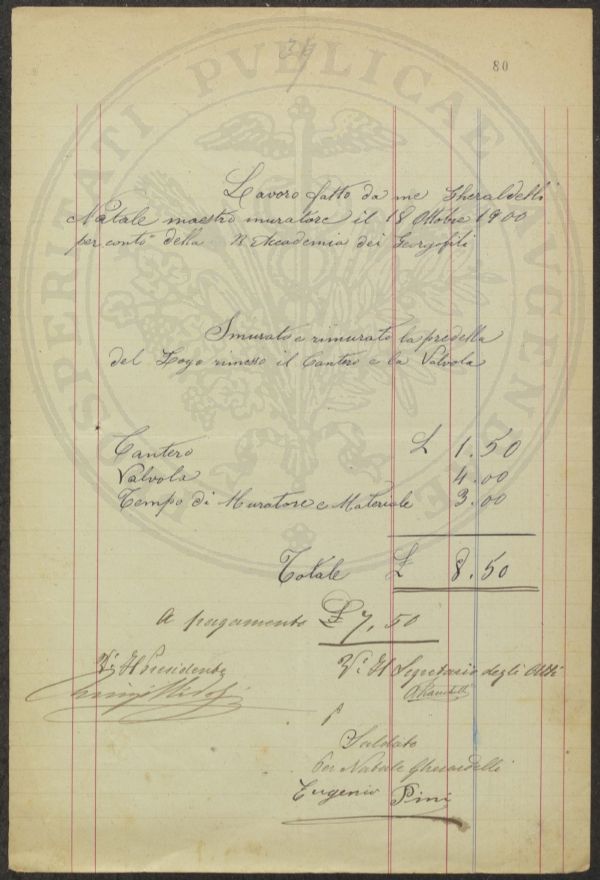 39
80
Lavoro fatto da me Gheraldelli
Natale maestro muratore il 18 Ottobre 1900
per conto della R Accademia dei Georgofili
Smurato e rimurato la predella
del Logo rimesso il Cantero e la Valvola
Cantero £ 1.50
Valvola 4.00
Tempo di Muratore e Materiale 3.00
Totale £ 8.50
A pagamento £ 7,50
V: Il Presidente
V: Il Segretario degli Atti
Saldato
Per Natale Gherardelli
Eugenio Pini
PROSPERITATI PVBLICAE AVGENDAE